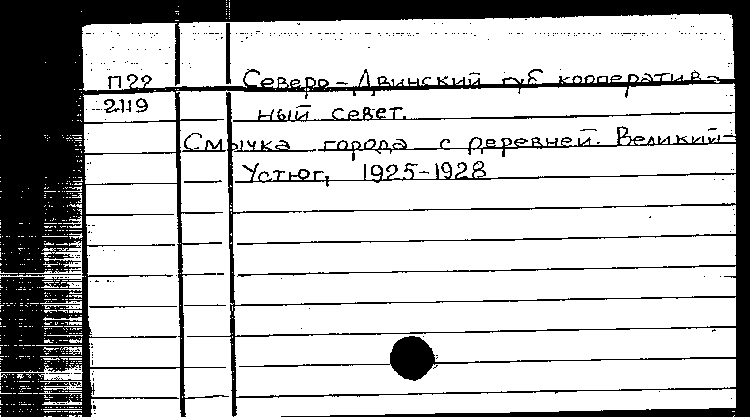 П22 Северо-Двинский губ кооператив-
2119 ный совет.
Смычка города с деревней. Великий-
Устюг, 1925-1928